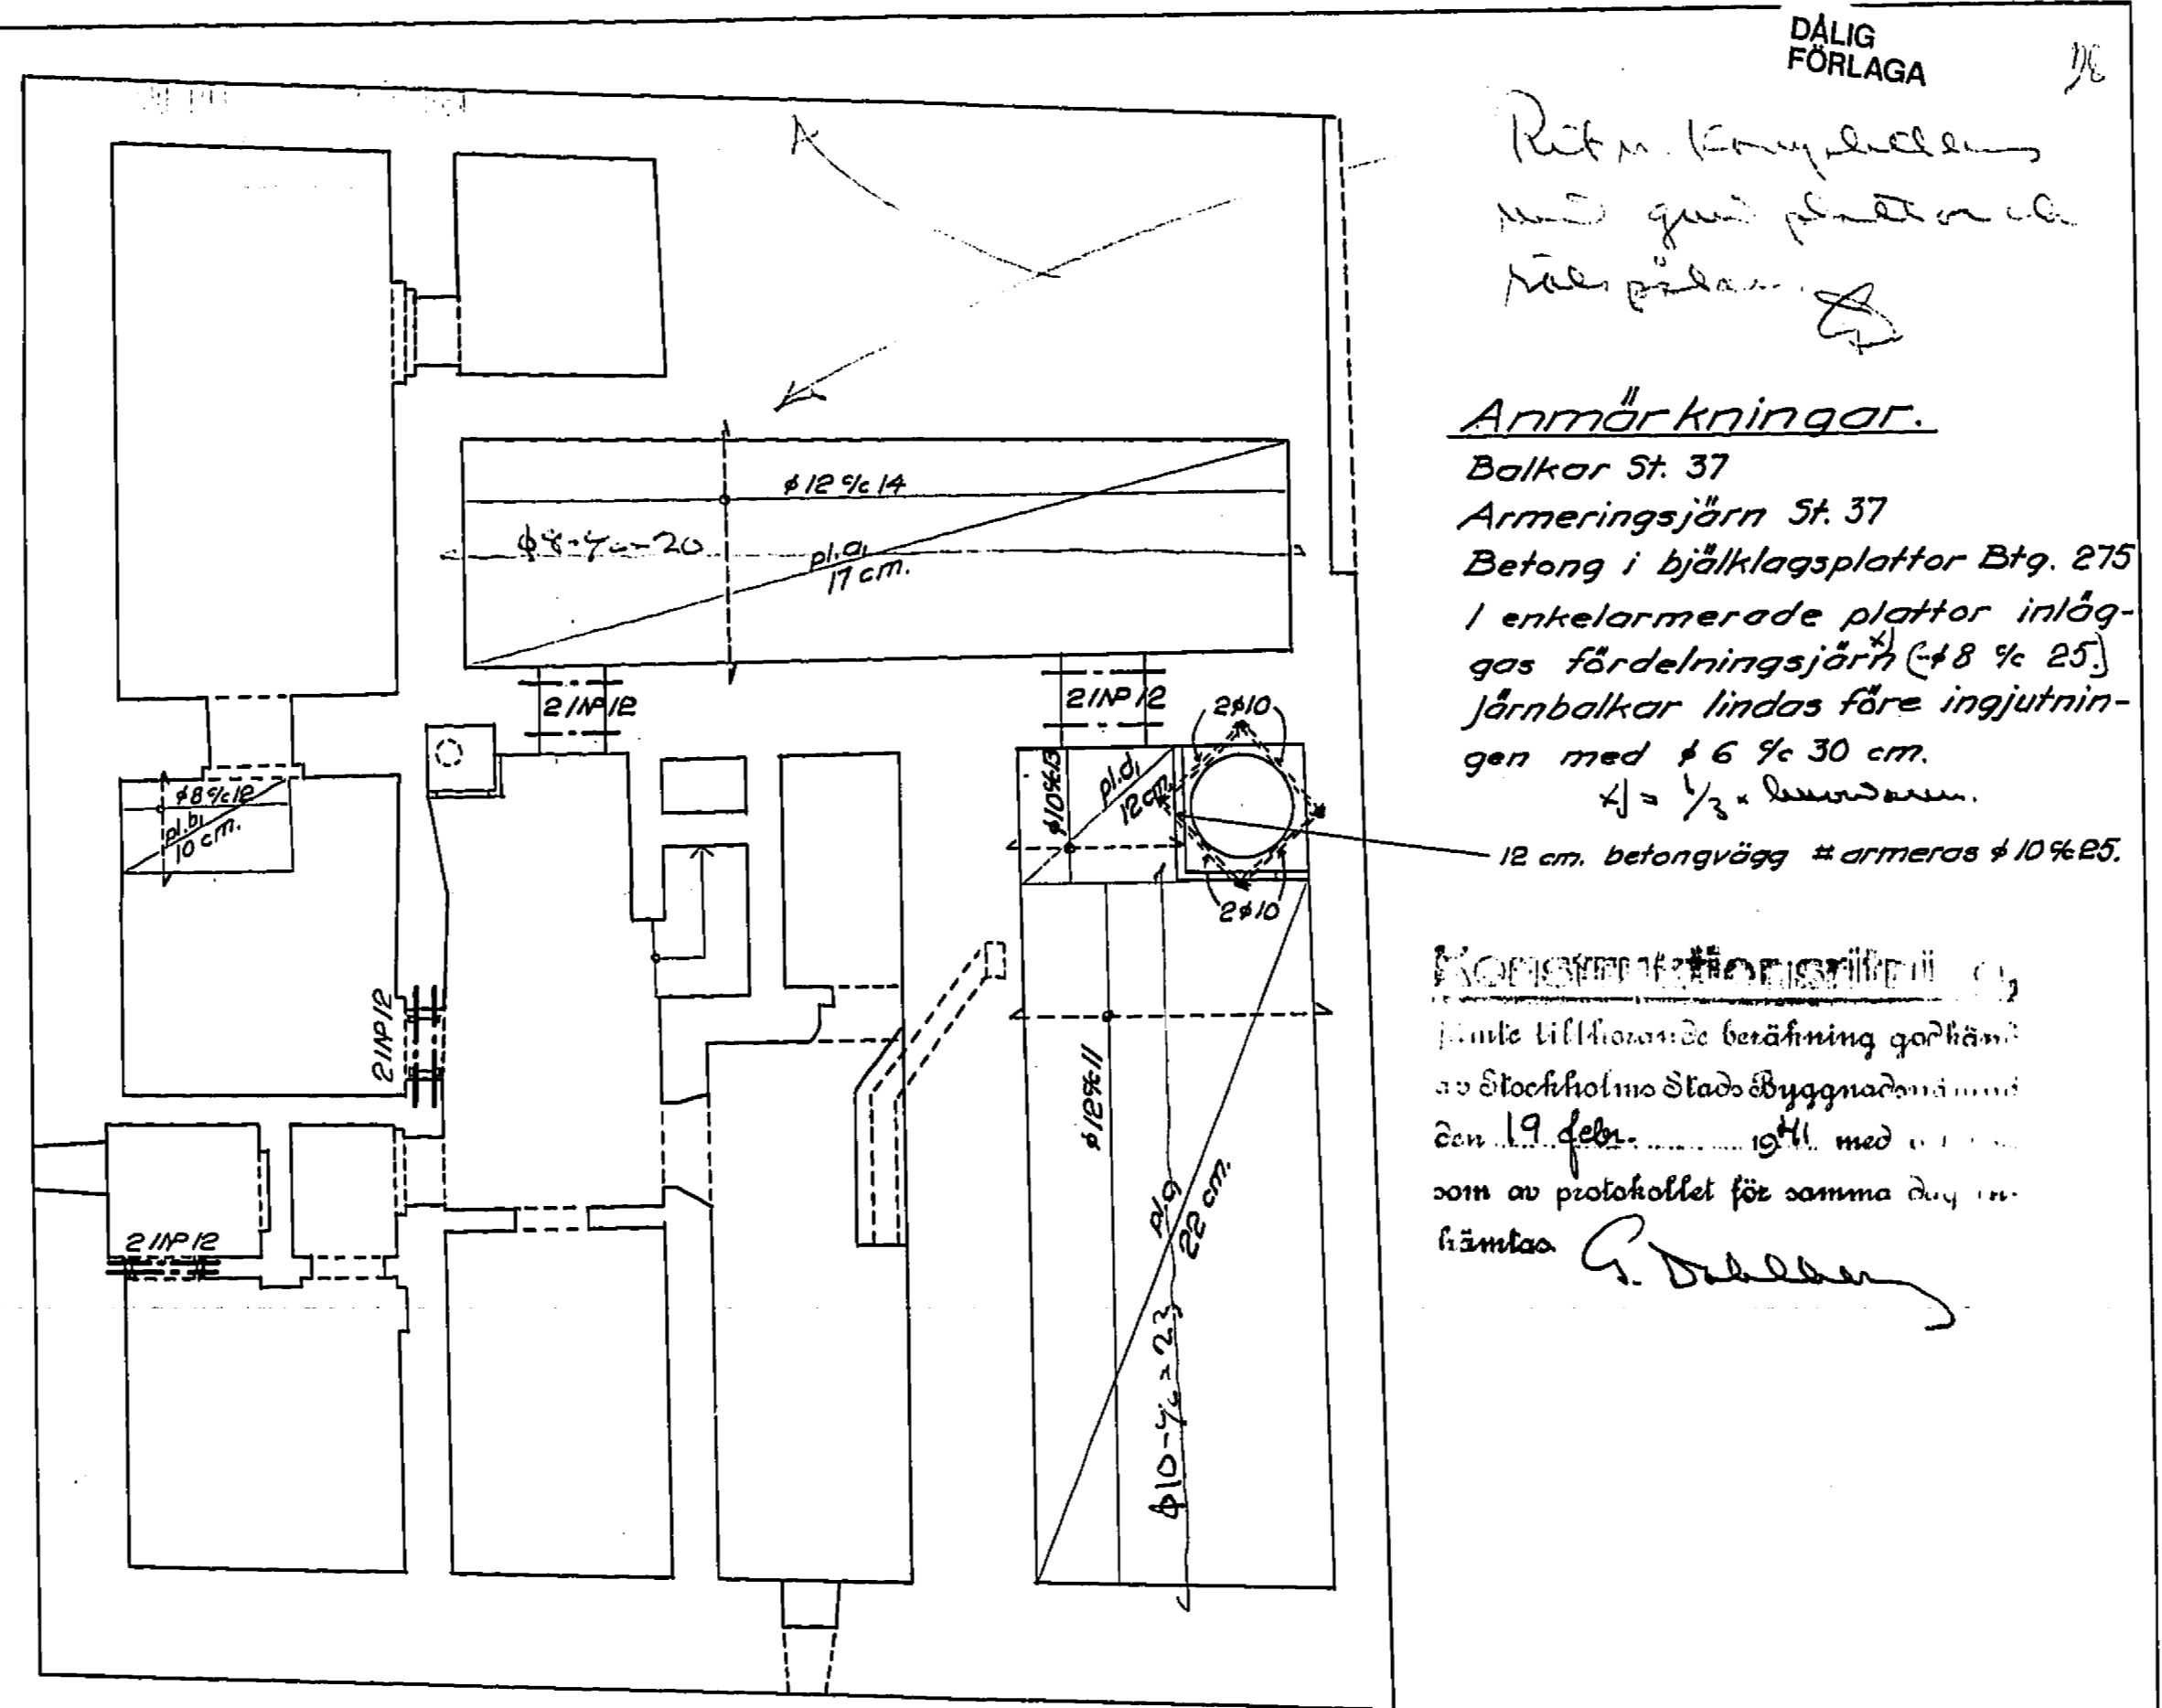 DÅLIG
FÖRLAGA
Anmärkningar.
Balkar St. 37
Armeringsjärn St. 37
Betong i bjälklagsplattor Btg. 275
I enkelarmerade plattor inläg-
gas fördelningsjärn x) (-ø8 c/c 25.)
Järnbalkar lindas före ingjutnin-
gen med ø 6 c/c 30 cm.
x) = 1/3 ×
12 cm. betongvägg # armeras ø 10 c/c 25.
jämte tillhörande beräkning godkänd
av Stockholms Stads Byggnadsnämnd
den 19 febr. 1941 med
som av protokollet för samma dag in-
hämtas.
G. Dahlberg
ø 12 c/c 14
ø8-c/c-20
pl. a,
17 cm.
2 INP 12
2 INP 12
2ø10
ø10 c/c 13
pl. d,
12 cm.
2ø10
ø8 c/c 12
pl. b,
10 cm.
2 INP 12
2 INP 12
ø12 c/c 11
pl. g
22 cm.
ø10-c/c=23